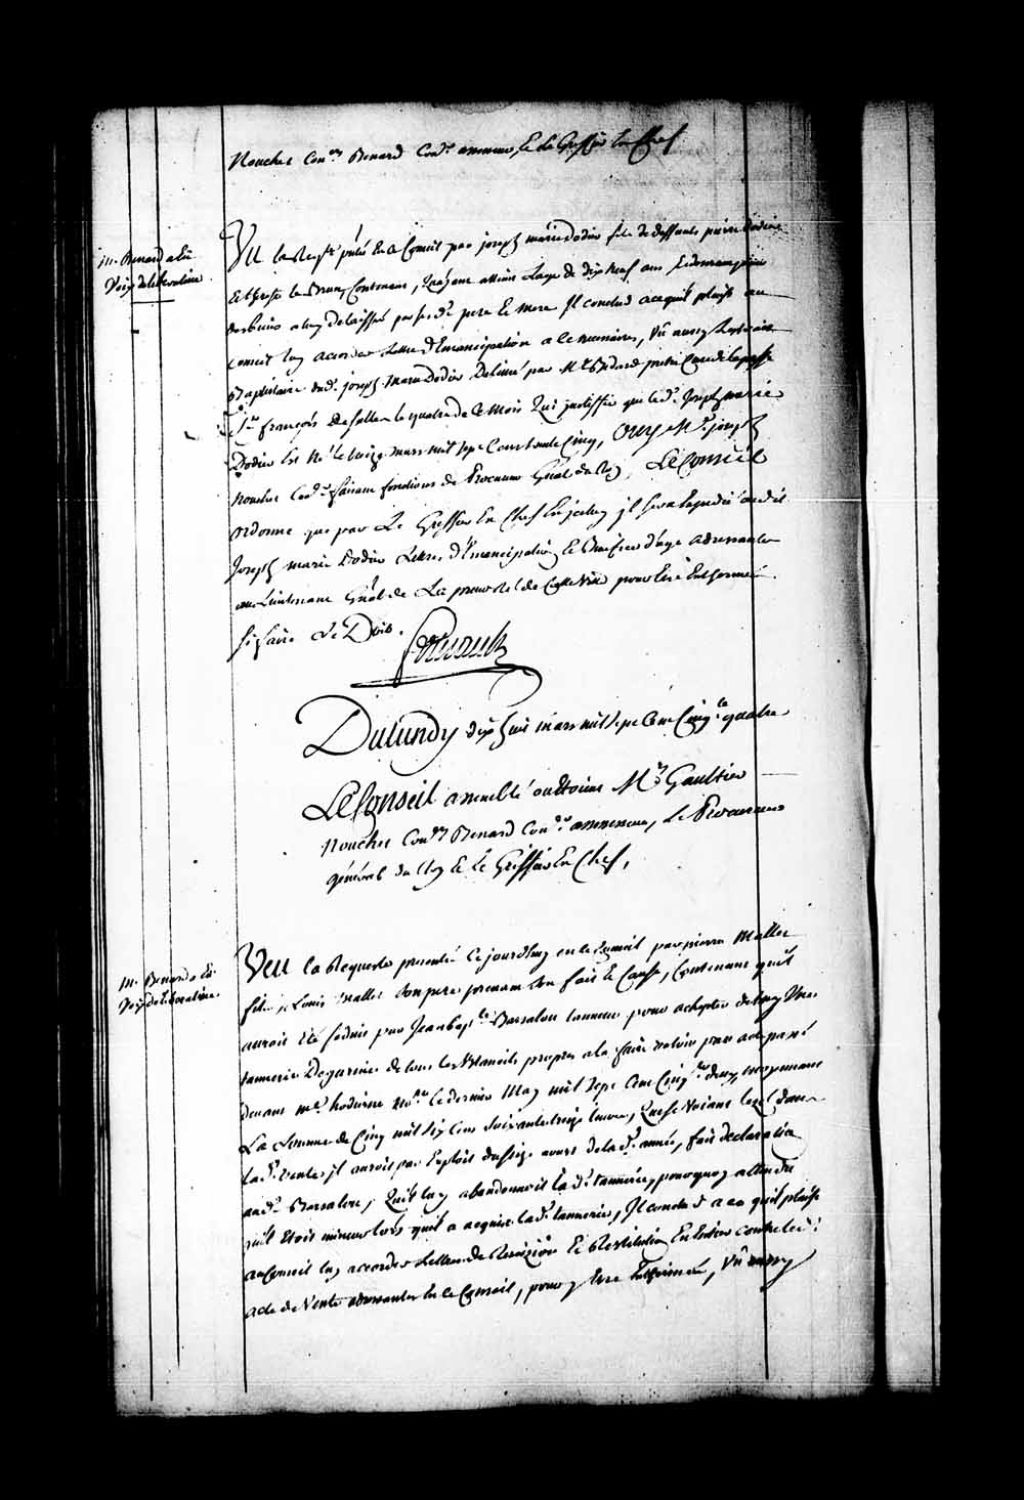 Nouchet Con.er Benard Con.er assesseur, Et Le Greffier En Chef
M. Benard a Eu
Voix deliberative
Vu la Req.te p'ntée En ce Conseil par joseph marie Dodier fils de deffunts pierre Dodier
Et le Brun, Contenant, Qu'ayant atteint L'age de dix neuf ans
des biens a luy delaissés par ses d. pere Et mere Il conclud acequ'il plaise au
Conseil luy accorder Lettres d'Emancipation a ce necessaires, Vû aussy L'extrait
Baptistaire dud. joseph Marie Dodier Delivré par M.e Bedard pretre Curé de la p.sse
S.t françois de salles le quatre de ce Mois Qui justiffie que led. Joseph marie
Dodier Est Né le treize mars mil sept Cent trente Cinq, Ouy M.e joseph
Nouchet Con.er faisant fonctions de Procureur Gnal du Roy, Le Conseil
ordonne que par Le Greffier En Chef En jceluy jl sera Expedié aud.it
Joseph marie Dodier Lettres d'Emancipation Et Benefice d'age adressantes
au Lieutenant Gnal de La prevosté de Cette Ville pour Etre Entherinées
si faire Se Doit.
Du Lundy dix huit mars mil sept Cent Cinq.te quatre
Le Conseil assemblé ou Etoient M.rs Gaultier
Nouchet Con.ers Benard Con.er assesseur, Le Procureur
général du Roy Et Le Greffier En Chef,
M. Benard a Eu
Voix deliberative.
Veu la Requeste presentée Cejourd'huy en ce Conseil par pierre Mallet
fils, de Louis Mallet son pere prenant son fait Et Cause, Contenant qu'il
auroit Eté seduit par Jean bap.te Barsalou tanneur pour achepter de luy Une
tannerie Degarnie de tous les Utancils propres a la faire valoir par acte passé
devant M.e hodiesne No.re le dernier May mil sept Cent Cinq.te deux, moyennant
La Somme de Cinq mil six Cens soixante treize livres, Que se Voiant lezé dans
lad. Vente jl auroit par Exploit du seize aoust de lad. année, fait declaration
aud. Barsalou, Qu'il luy abandonnoit lad. tannerie, pourquoy attendu
qu'il Etoit mineur lors qu'il a acquis lad. tannerie, Il conclud a ce qu'il plaise
au Conseil luy accorder Lettres de Rescision Et Restitution En Entier contre led.
acte de Vente adressantes En ce Conseil, pour y Etre Entherinées, Vû aussy